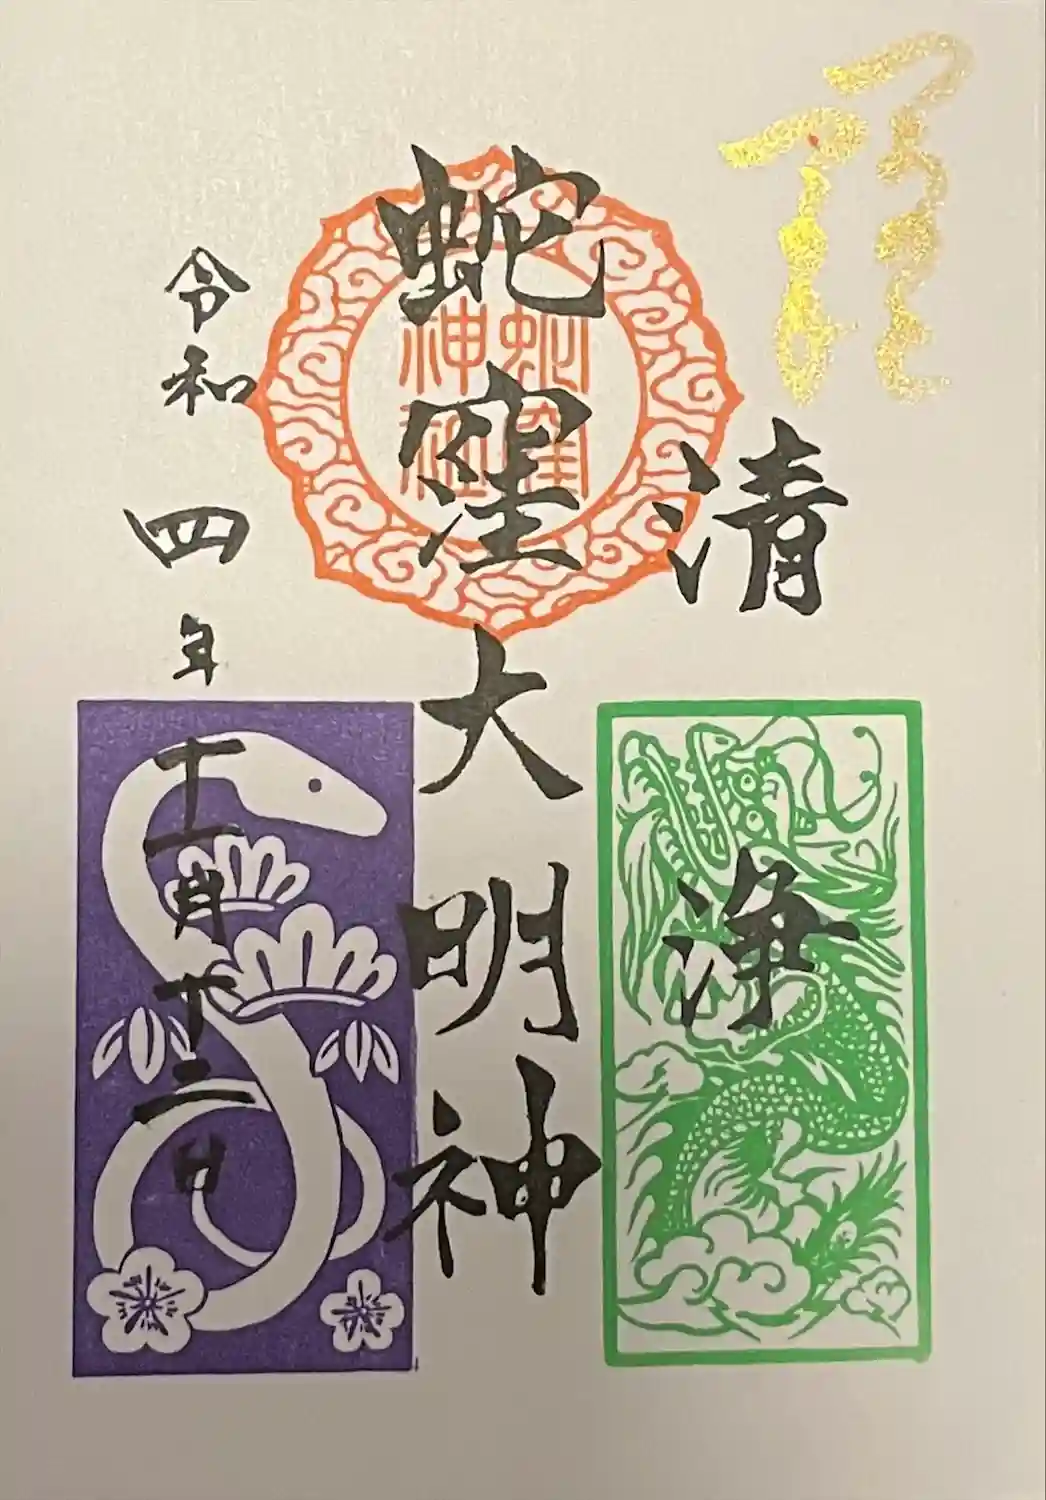 清浄
蛇窪大明神
蛇窪
神社
令和四年十一月十二日